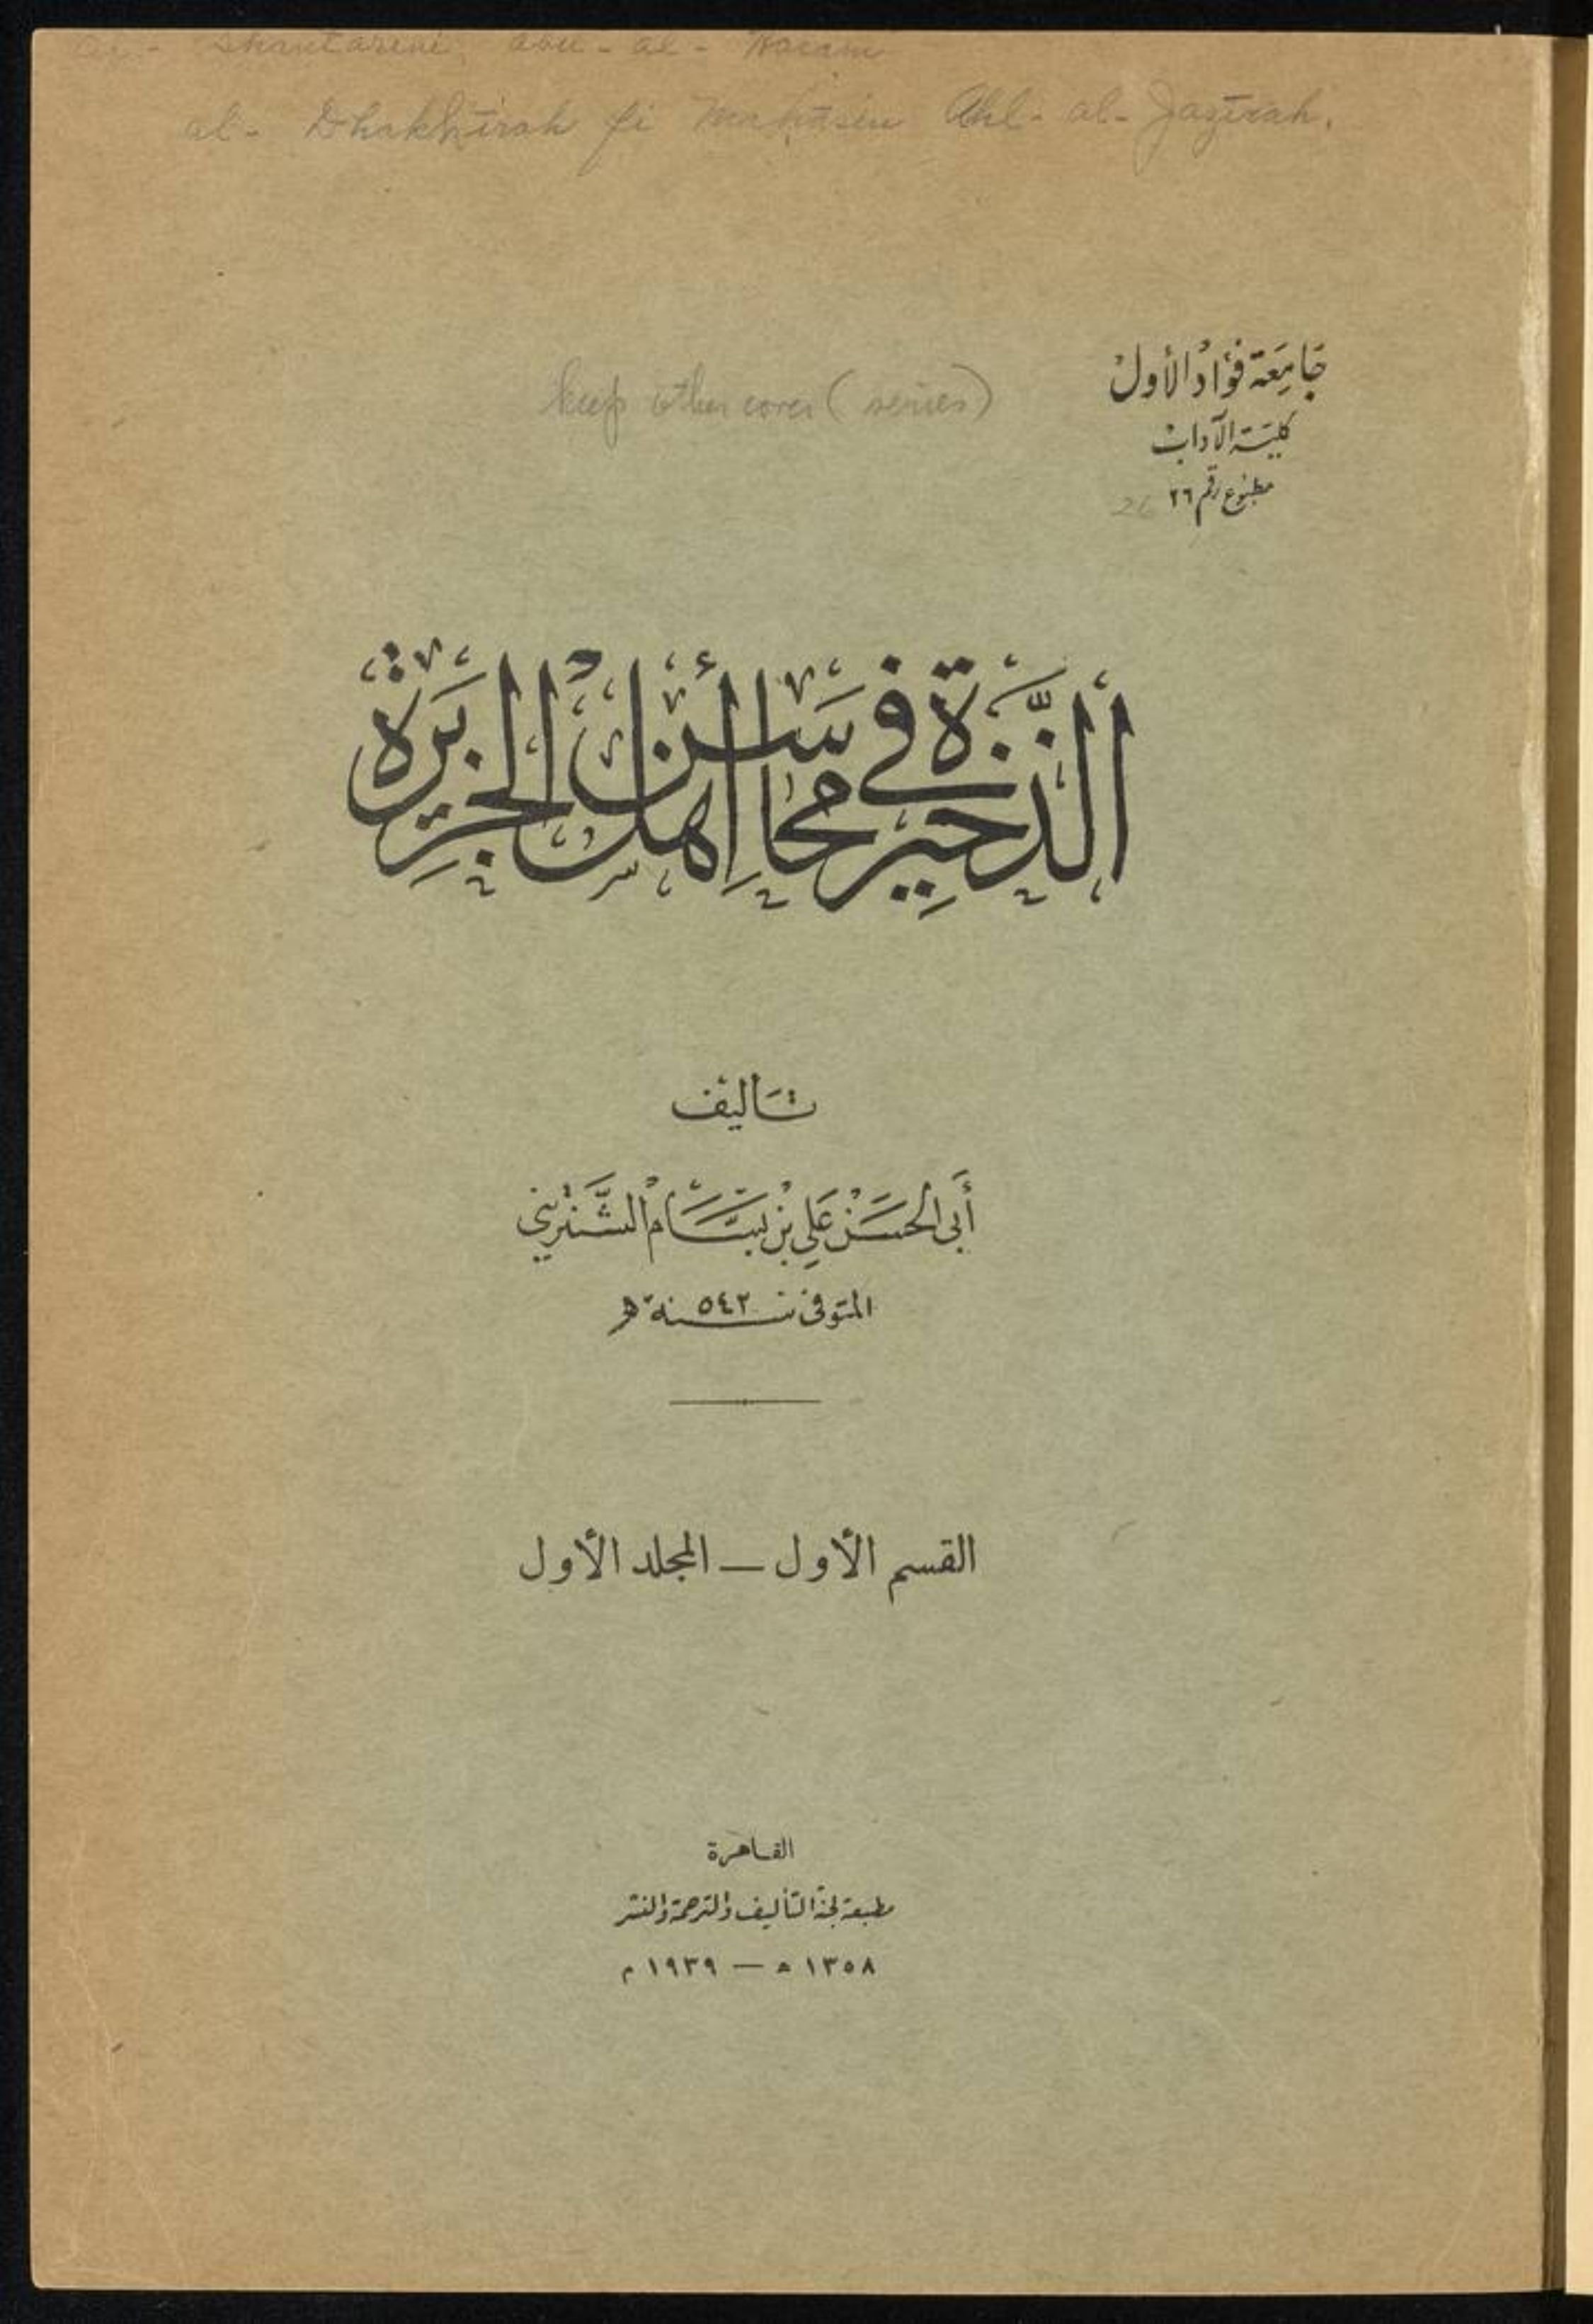 al- Dhakhīrah fi Mahāsin Ahl- al- Jazīrah.
keep other cover (series)
جَامِعَة فؤَاد الأَول
كليَّة الآداب
مطبوع رقم ٢٦ 26
ألذَّخِيرَة فى مَحَاسِن أَهْل الجَزِيرَة
تأليف
أبى الحَسَن عَلى بْن بَسَّام الشَّنْتَرِينى
المتوفى سنة ٥٤٢ هـ
القسم الأول — المجلد الأول
القاهرة
مطبعة لجنة التأليف والترجمة والنشر
١٣٥٨ هـ — ١٩٣٩ م